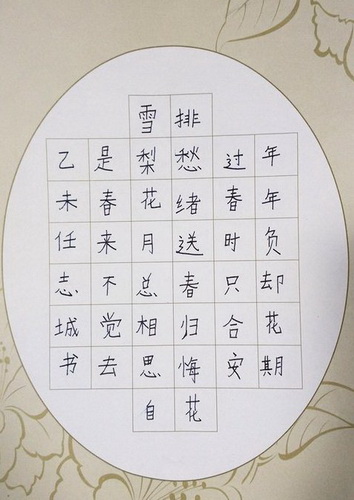 年年负却花期
过春时只合安
排愁绪送春归悔花
雪梨花月总相思自
是春来不觉去
乙未任志城书